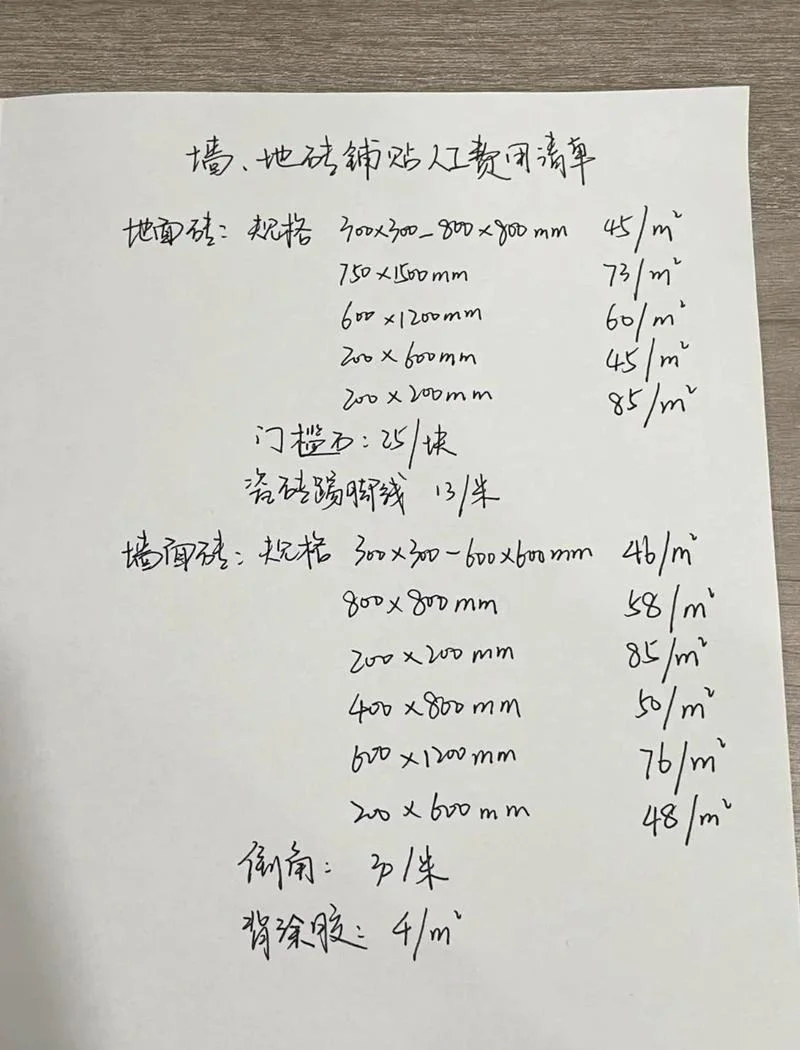 墙、地砖铺贴人工费用清单
地面砖：规格 300×300-800×800mm 45/m²
750×1500mm 73/m²
600×1200mm 60/m²
200×600mm 45/m²
200×200mm 85/m²
门槛石：25/块
瓷砖踢脚线 13/米
墙面砖：规格 300×300-600×600mm 46/m²
800×800mm 58/m²
200×200mm 85/m²
400×800mm 50/m²
600×1200mm 76/m²
200×600mm 48/m²
倒角：30/米
背涂胶：4/m²